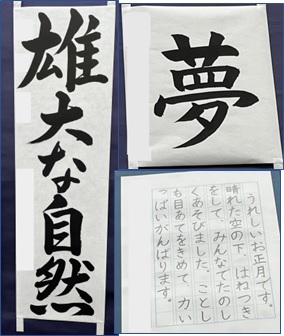 雄大な自然
夢
うれしいお正月です。
晴れた空の下、はねつき
をして、みんなでたのし
くあそびました。ことし
も目あてをきめて、力い
っぱいがんばります。